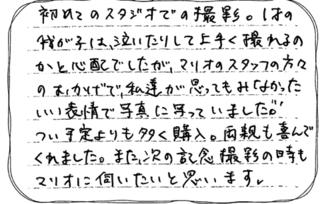 初めてのスタジオでの撮影。1才の
我が子は、泣いたりして上手く撮れるの
かと心配でしたが、マリオのスタッフの方々
のおかげで、私達が思ってもみなかった
いい表情で写真に写っていました!!
つい予定よりも多く購入。両親も喜んで
くれました。また、次の記念撮影の時も
マリオに伺いたいと思います。